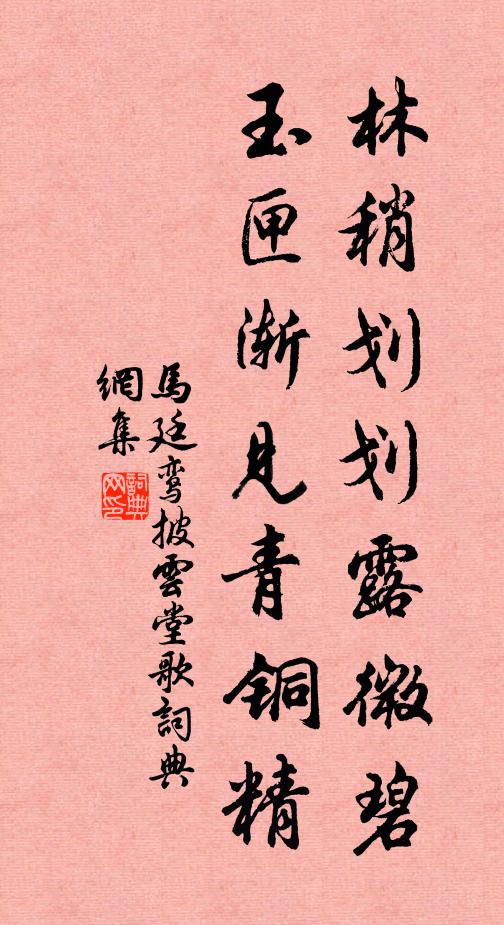 林稍划划露微碧
玉匣渐见青铜精
馬廷鸾披雲堂歌詞典
網集
詞典
网印